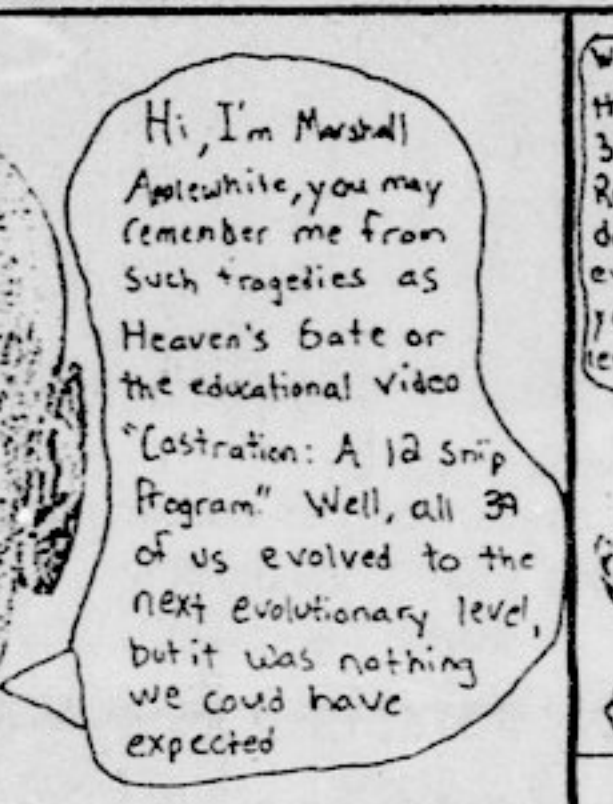 Hi, I'm Marshall
Applewhite, you may
remember me from
such tragedies as
Heaven's Gate or
the educational video
"Castration: A 12 Snip
Program." Well, all 39
of us evolved to the
next evolutionary level,
but it was nothing
we could have
expected